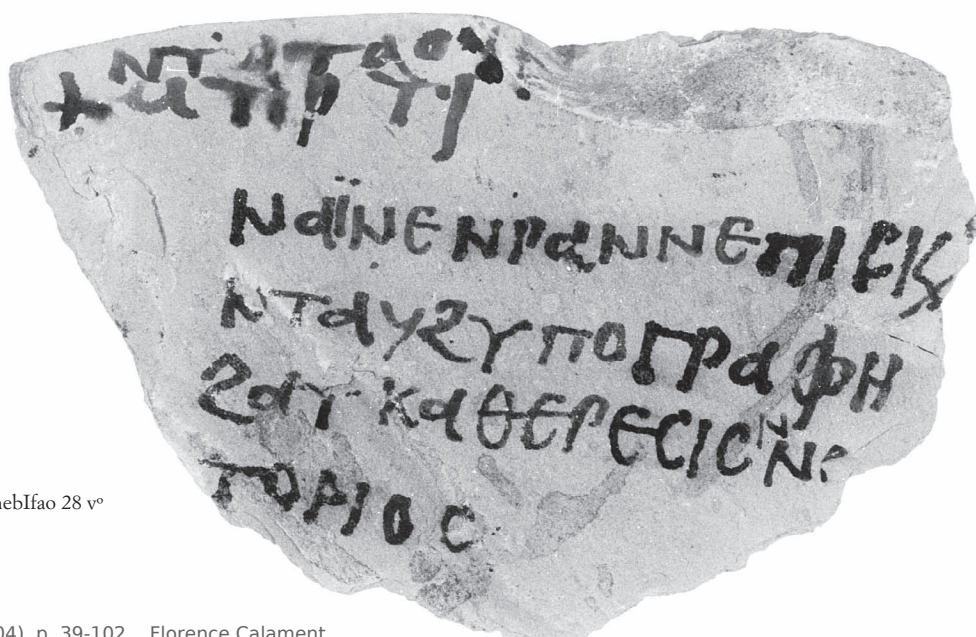 ⲛⲧⲁⲧⲁⲟⲩ
ⲛⲁⲓ̈ⲛⲉⲛⲣⲁⲛⲛⲉⲡⲓⲥⲕ
ⲛⲧⲁⲩϩⲩⲡⲟⲅⲣⲁⲫⲏ
ϩⲁⲧⲕⲁⲑⲉⲣⲉⲥⲓⲥⲛⲛⲉ
ⲧⲟⲣⲓⲟⲥ
nebIfao 28 vº
04), p. 39-102 Florence Calament